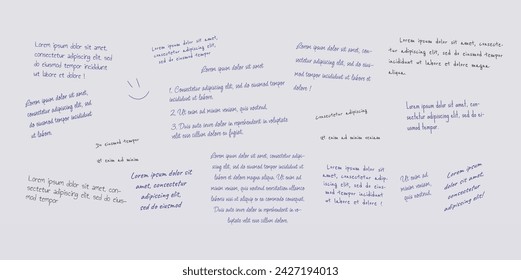 Lorem ipsum dolor sit amet,
consectetur adipiscing elit, sed
do eiusmod tempor incididunt
ut labore !
Lorem ipsum dolor sit amet,
consectetur adipiscing elit,
sed do eiusmod tempor
Lorem ipsum dolor sit amet
1. Consectetur adipiscing elit, sed do eiusmod tempor
incididunt ut labore.
2. Ut enim ad minim veniam, quis nostrud.
3. Duis aute dolor in reprehenderit in voluptate
velit esse cillum dolore eu fugiat.
Lorem ipsum dolor sit amet, con-
sectetur adipiscing elit, sed do
eiusmod tempor incididunt ut
labore et dolore !
Lorem ipsum dolor sit amet, consectetur
adipiscing elit, sed do eiusmod tempor
incididunt ut labore et dolore magna
aliqua.
Lorem ipsum dolor sit amet,
consectetur adipiscing elit, sed
do eiusmod tempor incididunt
ut labore.
Do eiusmod tempor
Ut enim ad minim
consectetur adipiscing
Ut enim ad minim veniam
Lorem ipsum dolor sit amet,
consectetur adipiscing elit, sed do
eiusmod tempor.
Lorem ipsum dolor sit amet, con-
sectetur adipiscing elit, sed do eius-
mod tempor
Lorem ipsum dolor sit
amet, consectetur
adipiscing elit,
sed do eiusmod
Lorem ipsum dolor sit amet, consectetur
adipiscing elit, sed do eiusmod tempor
incididunt ut labore et dolore
magna aliqua. Ut enim ad minim
veniam, quis nostrud exercitation
ullamco laboris nisi ut aliquip ex ea
commodo consequat. Duis aute irure dolor
in reprehenderit in voluptate
velit esse
Lorem ipsum dolor sit
amet, consectetur adipis-
cing elit, sed do
eiusmod tempor
incididunt ut labore et
dolore !
Ut enim ad
minim veniam,
quis nostrud.
Lorem ipsum dolor
sit amet,
consectetur
adipiscing elit!
shutterstock.com · 2427194013